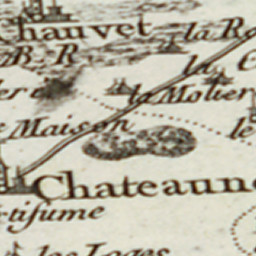 Chauvet
la Ro
B. R
la C
la Molier
Maison
le
Chateaun
tisume
les Loges